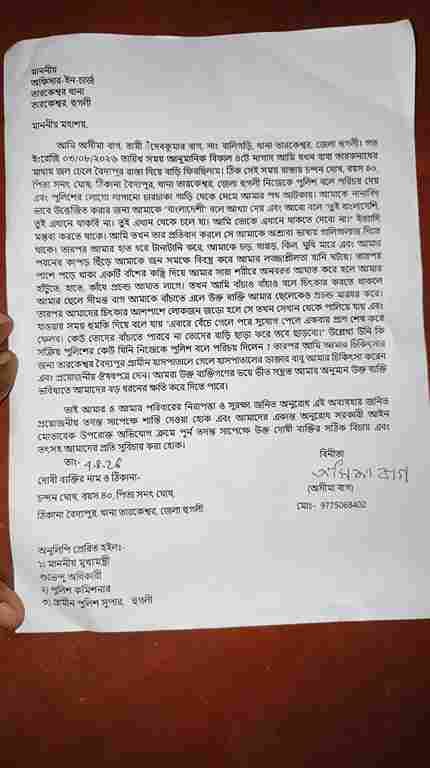 মাননীয়
অফিসার-ইন-চার্জ
তারকেশ্বর থানা
তারকেশ্বর, হুগলী
মাননীয় মহাশয়,
আমি অসীমা বাগ, স্বামী ঁদেবকুমার বাগ, সাং বালিগড়ি, থানা তারকেশ্বর, জেলা হুগলী। গত
ইংরেজি ০৩/০৮/২০২৬ তারিখ সময় আনুমানিক বিকাল ৪টে নাগাদ আমি যখন বাবা তারকনাথের
মাথায় জল ঢেলে বৈদ্যপুর রাস্তা দিয়ে বাড়ি ফিরছিলাম। ঠিক সেই সময় রাস্তায় চন্দন ঘোষ, বয়স ৪০,
পিতা সনৎ ঘোষ, ঠিকানা বৈদ্যপুর, থানা তারকেশ্বর, জেলা হুগলী নিজেকে পুলিশ বলে পরিচয় দেয়
এবং পুলিশের লোগো লাগানো চারচাকা গাড়ি থেকে নেমে আমার পথ আটকায়। আমাকে নানাবিধ
ভাবে উত্তেজিত করার জন্য আমাকে "বাংলাদেশী" বলে আখ্যা দেয় এবং আরো বলে "তুই বাংলাদেশি,
তুই এখানে থাকবি না। তুই এখান থেকে চলে যা। আমি তোকে এখানে থাকতে দেবো না।" ইত্যাদি
মন্তব্য করতে থাকে। আমি তখন তার প্রতিবাদ করলে সে আমাকে অশ্রাব্য ভাষায় গালিগালাজ দিতে
থাকে। তারপর আমার হাত ধরে টানাটানি করে, আমাকে চড় থাপ্পড়, কিল, ঘুষি মারে এবং আমার
পরনের কাপড় ছিঁড়ে আমাকে জন সমক্ষে বিবস্ত্র করে আমার লজ্জাশ্লীলতা হানি ঘটায়। তারপর
পাশে পড়ে থাকা একটি বাঁশের কঞ্চি দিয়ে আমার সারা শরীরে অনবরত আঘাত করে হলে আমার
হাঁটুতে, হাতে, কাঁধে প্রচন্ড আঘাত লাগে। তখন আমি বাঁচাও বাঁচাও বলে চিৎকার করতে থাকলে
আমার ছেলে দীমন্ত বাগ আমাকে বাঁচাতে এলে উক্ত ব্যক্তি আমার ছেলেকেও প্রচন্ড মারধর করে।
তারপর আমাদের চিৎকার আশপাশে লোকজন জড়ো হলে সে তখন সেখান থেকে পালিয়ে যায় এবং
যাওয়ার সময় হুমকি দিয়ে বলে যায় "এবারে বেঁচে গেলে পরে সুযোগ পেলে একবার প্রাণ শেষ করে
ফেলব। কেউ তোদের বাঁচাতে পারবে না তোদের বাড়ি ছাড়া করে তবে ছাড়বো।" উল্লেখ্য উনি কি
সক্রিয় পুলিশের কেউ যিনি নিজেকে পুলিশ বলে পরিচয় দিলেন ? তারপর আমি আমার চিকিৎসার
জন্য তারকেশ্বর বৈদ্যপুর গ্রামীন হাসপাতালে গেলে হাসপাতালের ডাক্তার বাবু আমার চিকিৎসা করেন
এবং প্রয়োজনীয় ঔষধপত্র দেন। আমরা উক্ত ব্যক্তিগনের ভয়ে ভীত সন্ত্রস্ত আমার অনুমান উক্ত ব্যক্তি
ভবিষ্যতে আমাদের বড় ধরনের ক্ষতি করে দিতে পারে।
তাই আমার ও আমার পরিবারের নিরাপত্তা ও সুরক্ষা জনিত অনুরোধ এই অবস্থায় জনিত
প্রয়োজনীয় তদন্ত সাপেক্ষে শাস্তি দেওয়া হোক এবং আমাদের একান্ত অনুরোধ সরকারী আইন
মোতাবেক উপরোক্ত অভিযোগ ক্রমে পূর্ন তদন্ত সাপেক্ষে উক্ত দোষী ব্যক্তির সঠিক বিচার এবং
তৎসহ আমাদের প্রতি সুবিচার করা হোক।
তাং- ৭.৪.২৬
বিনীতা
অসিমা বাগ
(অসীমা বাগ)
মোঃ- 9775068402
দোষী ব্যক্তির নাম ও ঠিকানা-
চন্দন ঘোষ, বয়স ৪০, পিতা সনৎ ঘোষ,
ঠিকানা বৈদ্যপুর, থানা তারকেশ্বর, জেলা হুগলী
অনুলিপি প্রেরিত হইল-
১) মাননীয় মুখ্যমন্ত্রী
শুভেন্দু অধিকারী
২) পুলিশ কমিশনার
৩) গ্রামীন পুলিশ সুপার, হুগলী